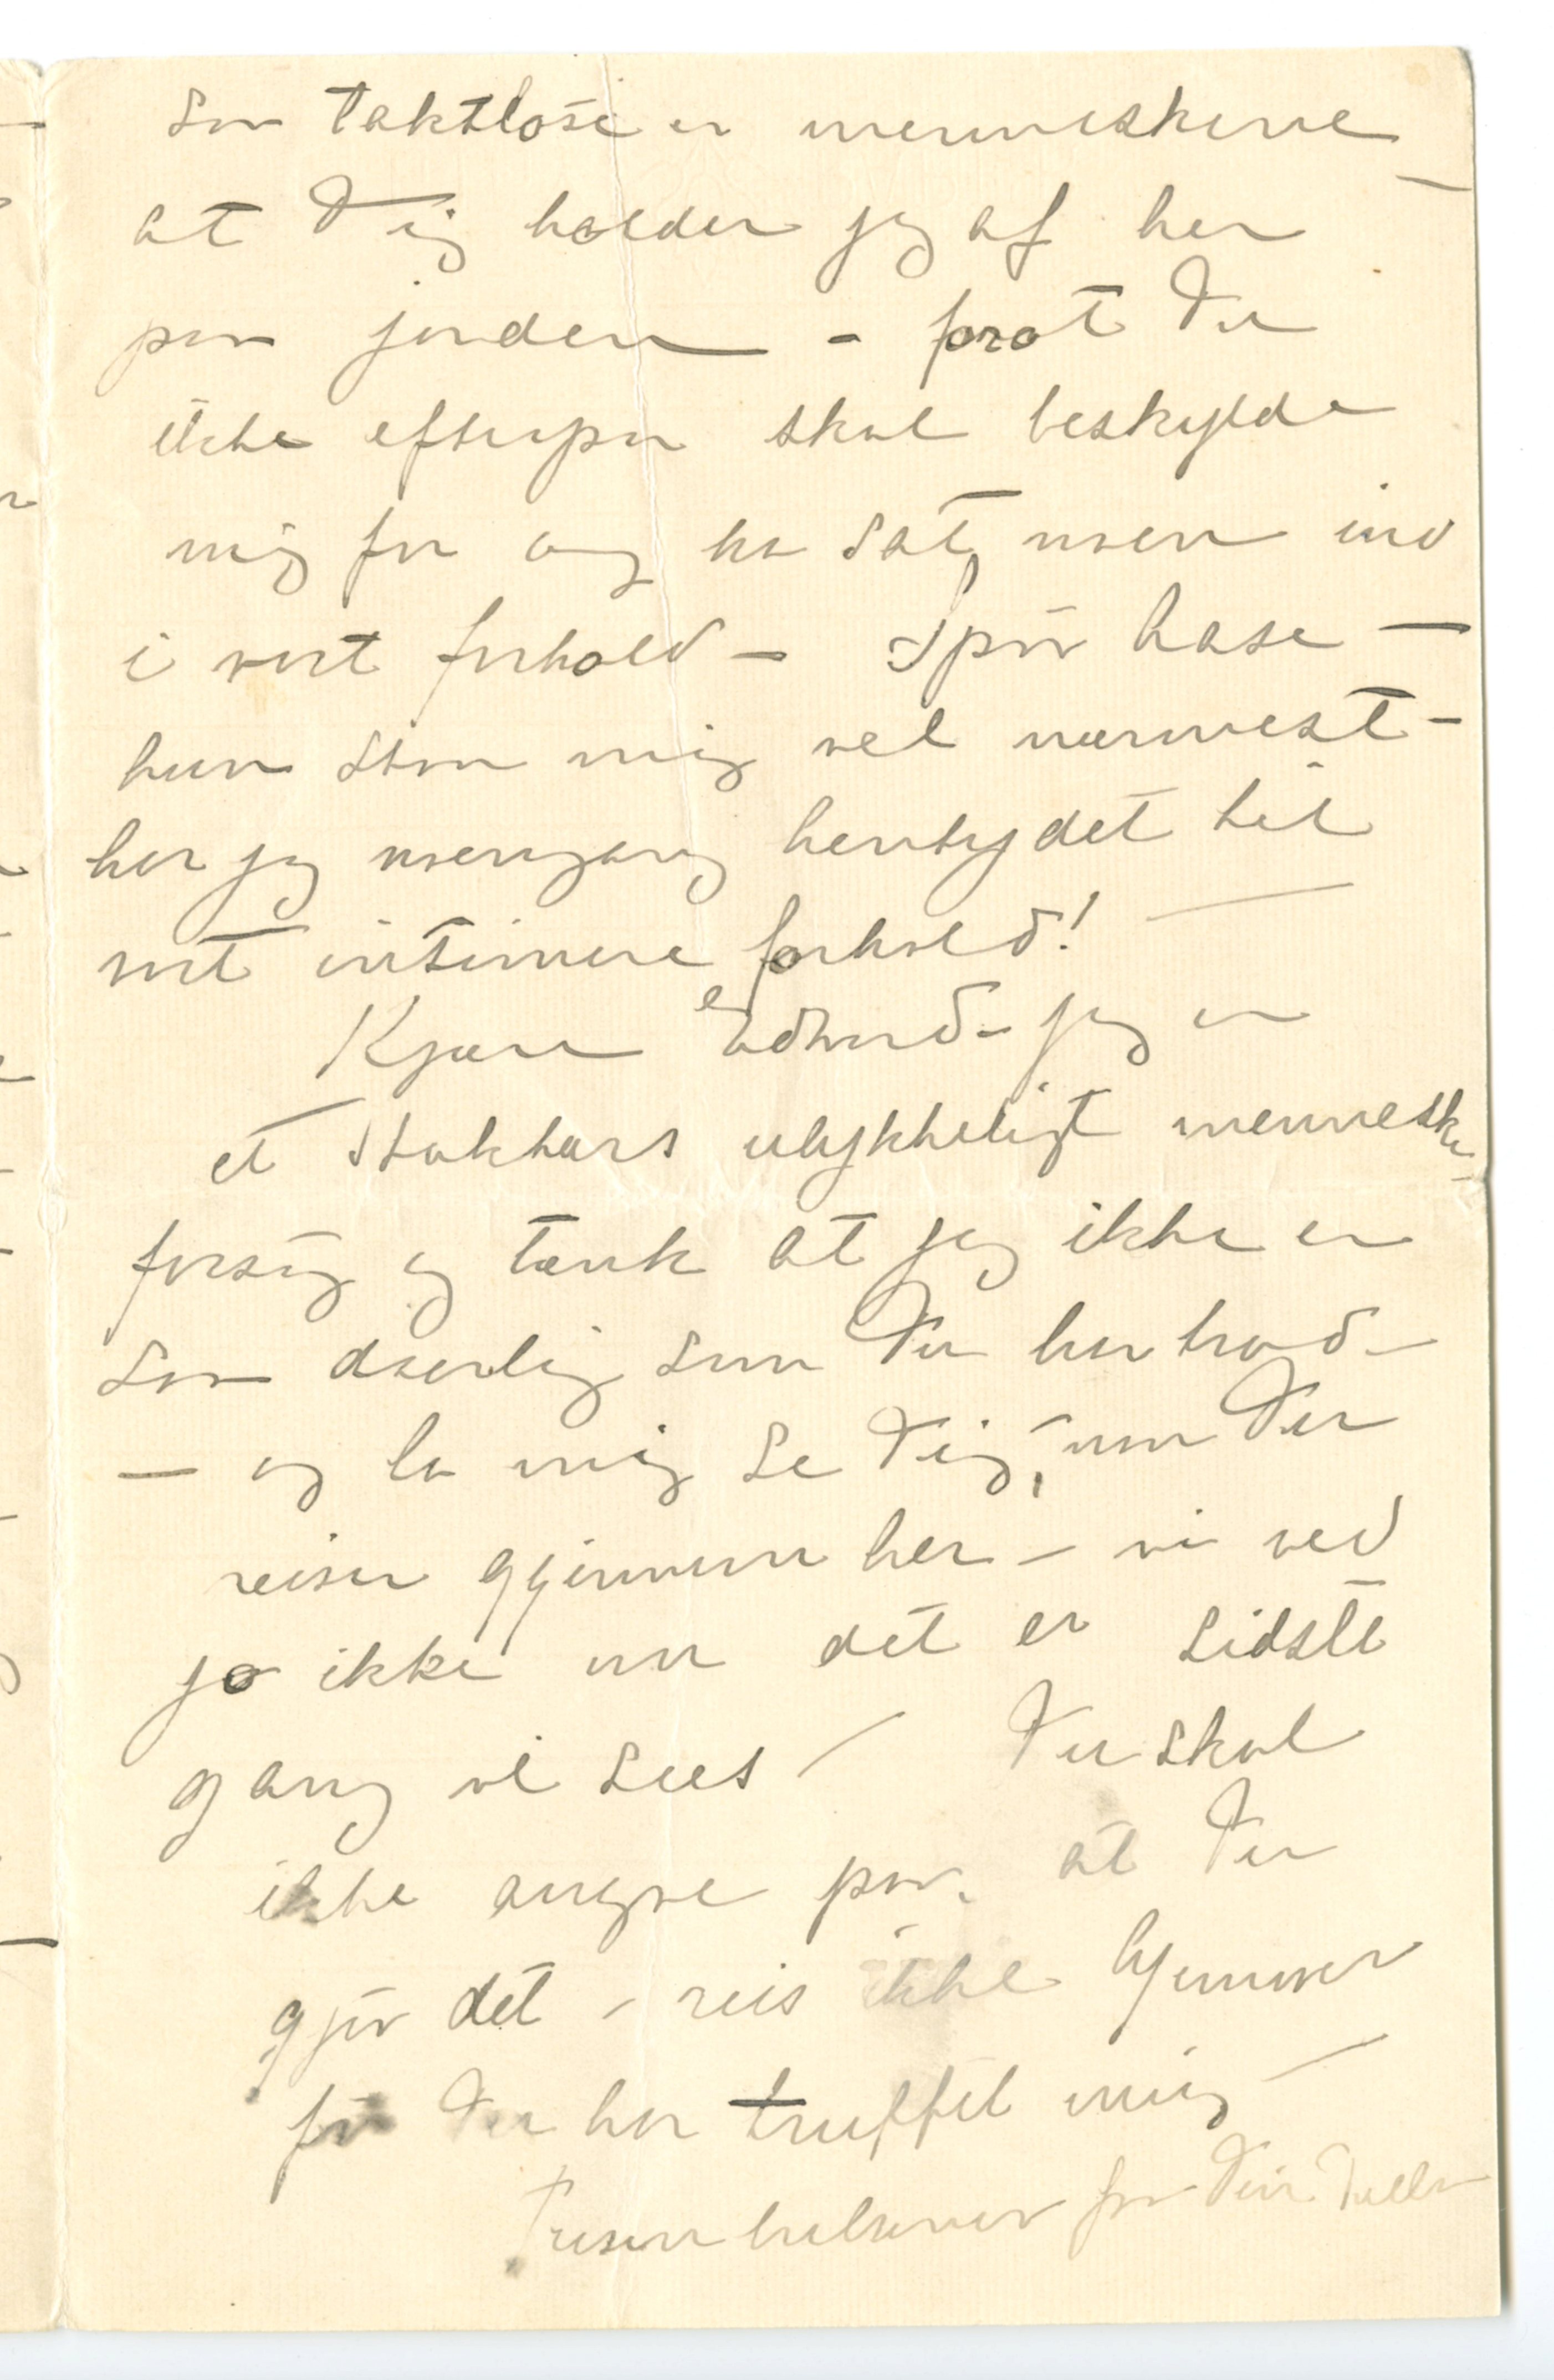 saa taktløse er menneskene –
at Dig holder jeg af her
paa jorden – forat Du
ikke efterpaa skal beskylde
mig for og ha sat noen ind
i vort forhold – Spør Aase –
hun staar mig vel nærmest –
har jeg noengang hentydet til
vort intimere forhold! –
Kjære Edvard – jeg er
et stakkars ulykkeligt menneske –
forsøg og tænk at jeg ikke er
saa daarlig som Du har trod –
– og la mig se Dig, naar Du
reiser gjennem her – vi ved
jo ikke om det er sidste
gang vi sees – Du skal
ikke angre paa at Du
gjør det – reis ikke hjemover
før Du har truffet mig –
Tusen hilsener fra Din Tulla